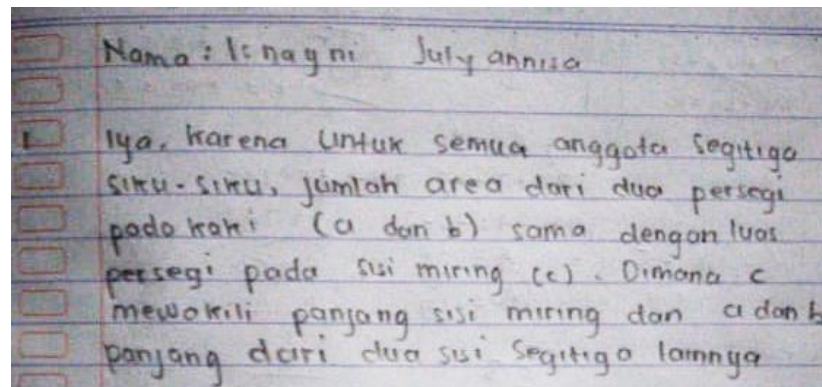 Nama : Isnayni July annisa
1. Iya, karena untuk semua anggota segitiga
siku-siku, jumlah area dari dua persegi
pada kaki (a dan b) sama dengan luas
persegi pada sisi miring (c). Dimana c
mewakili panjang sisi miring dan a dan b
panjang dari dua sisi segitiga lainnya